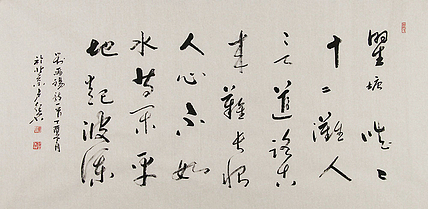 瞿塘嘈〻
十二滩人
言道路古
来难长恨
人心不如
水等闲平
地起波澜
刘禹锡诗
於北京